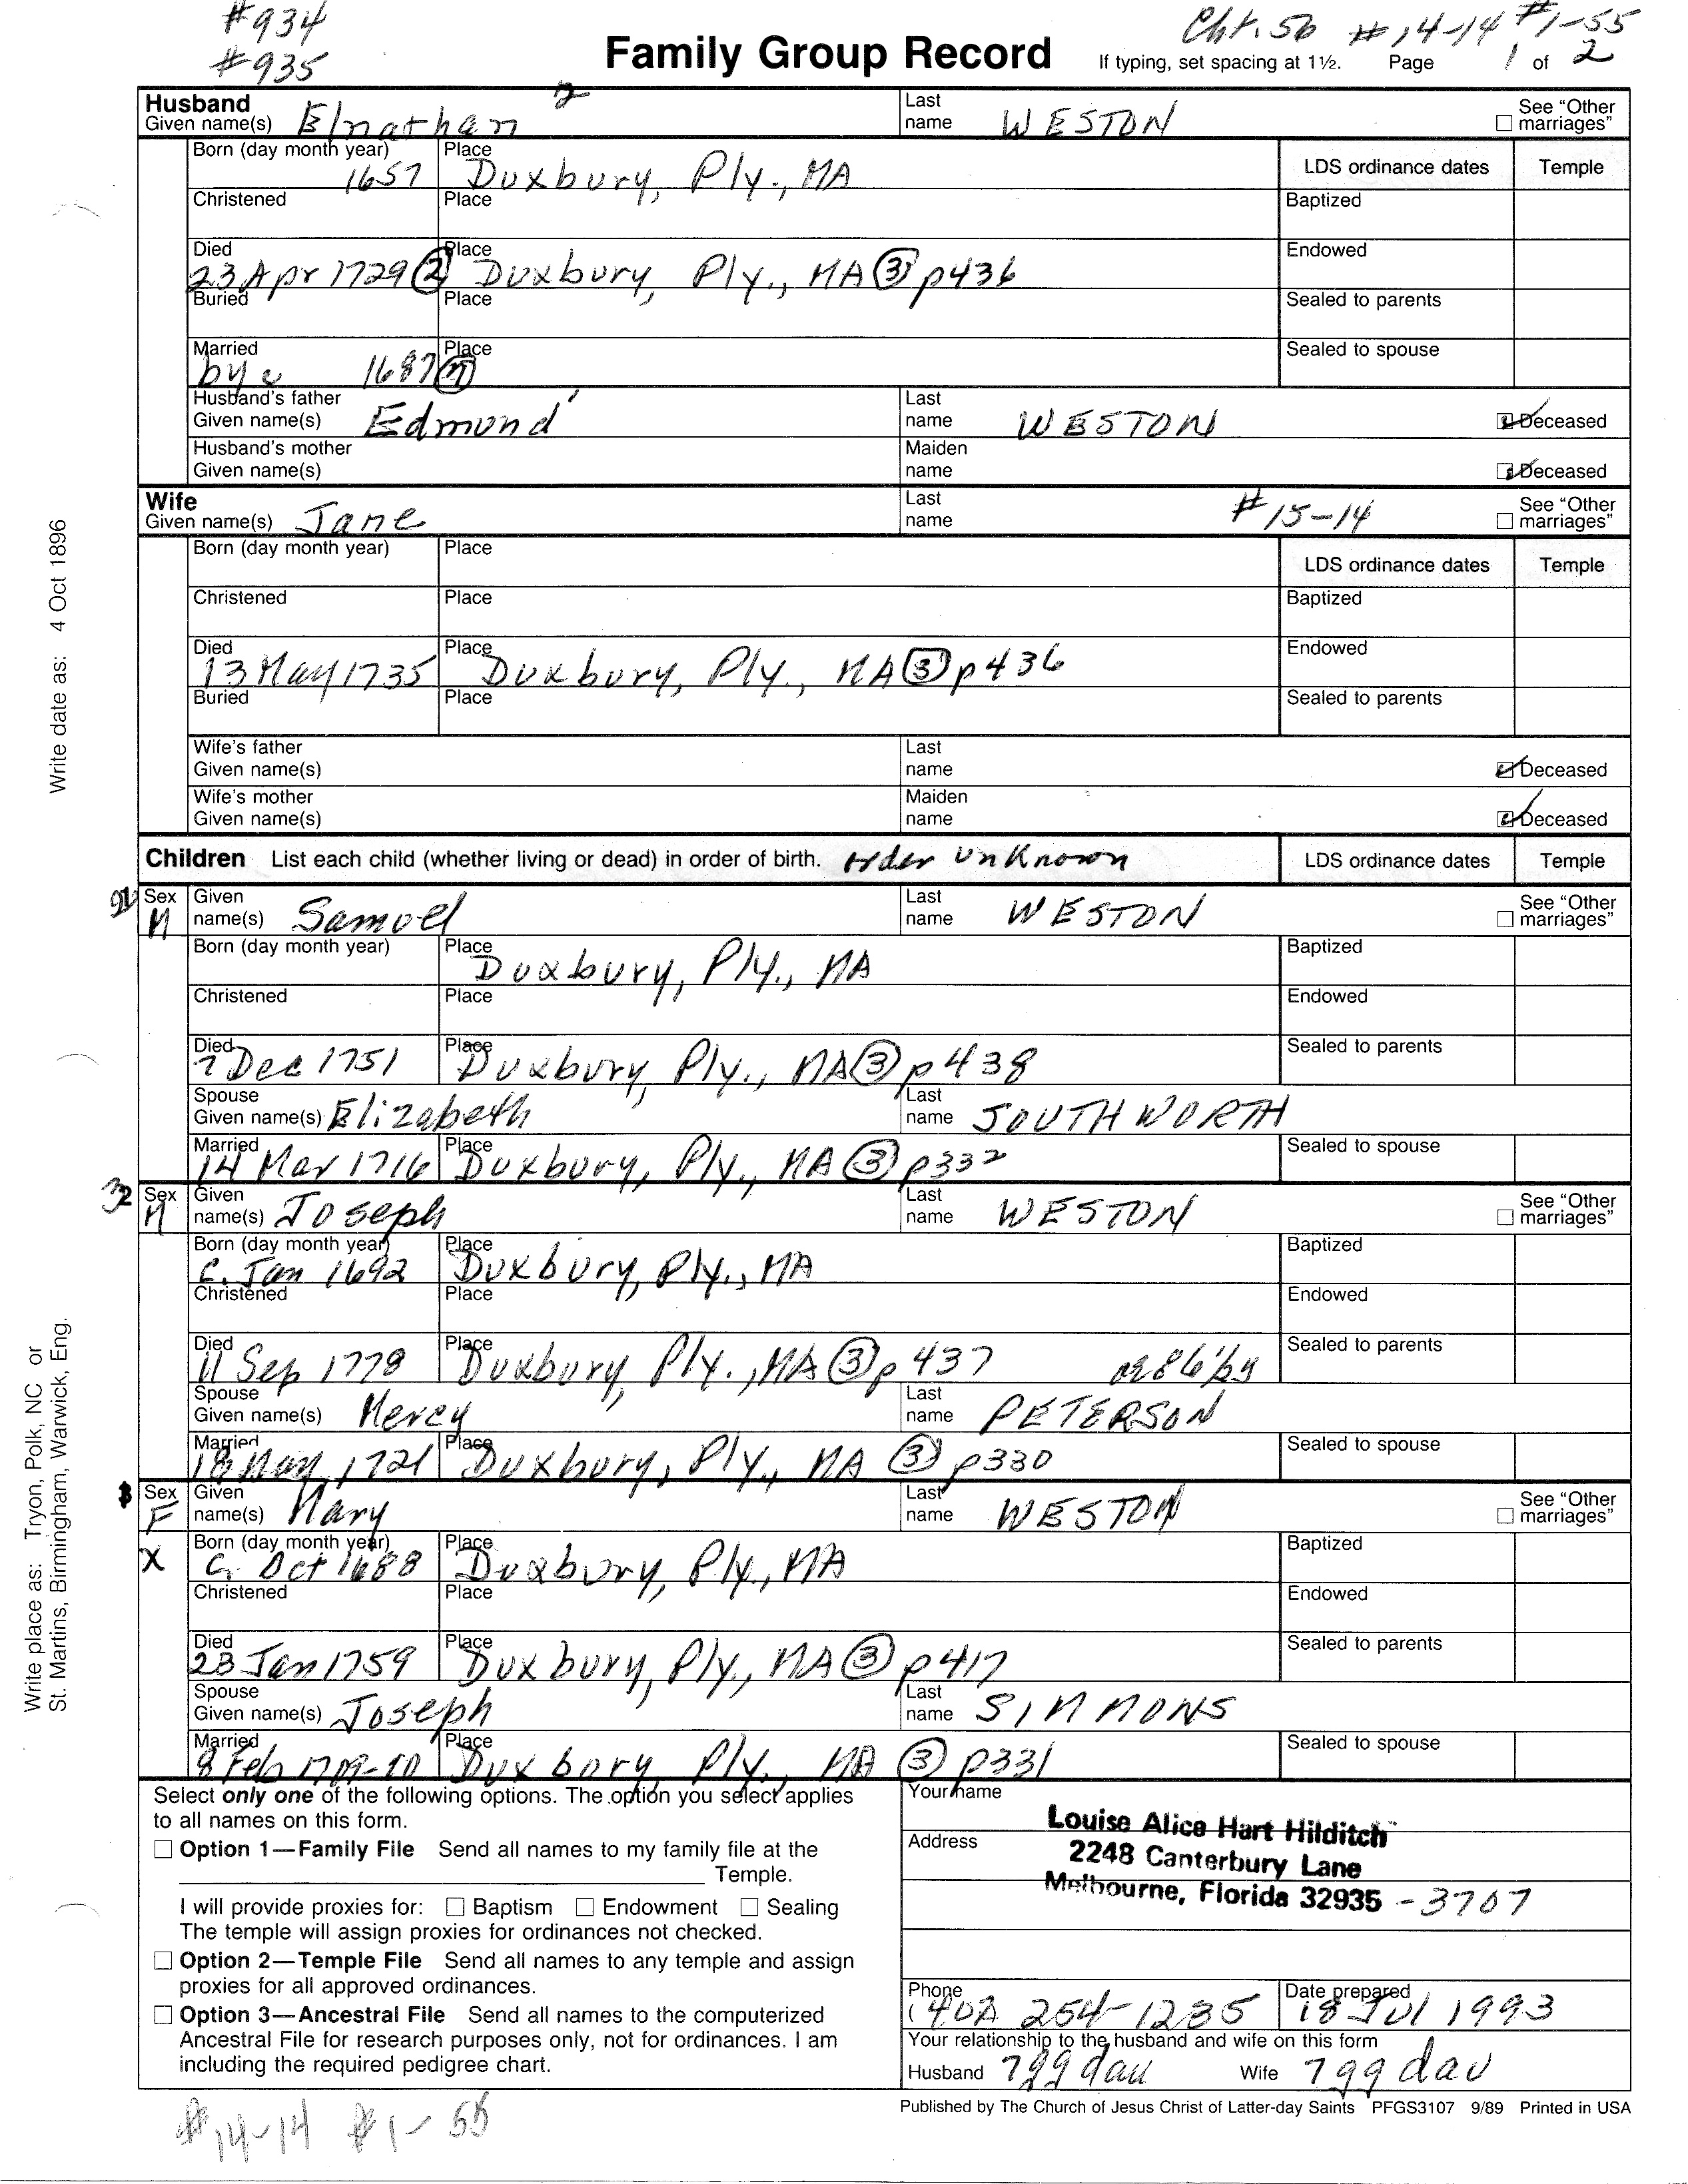 #934
#935
Family Group Record
Cht. 56 #14-14 #1-55
If typing, set spacing at 1½. Page 1 of 2
Husband
Given name(s) Elnathan 2 Last name WESTON See "Other marriages"
Born (day month year) 1657 Place Duxbury, Ply., MA LDS ordinance dates Temple
Christened Place Baptized
Died 23 Apr 1729 (2) Place Duxbury, Ply., MA (3) p436 Endowed
Buried Place Sealed to parents
Married by 1687 Place Sealed to spouse
Husband's father Given name(s) Edmond Last name WESTON Deceased
Husband's mother Given name(s) Maiden name Deceased
Wife
Given name(s) Jane Last name #15-14 See "Other marriages"
Born (day month year) Place LDS ordinance dates Temple
Christened Place Baptized
Died 13 May 1735 Place Duxbury, Ply., MA (3) p436 Endowed
Buried Place Sealed to parents
Wife's father Given name(s) Last name Deceased
Wife's mother Given name(s) Maiden name Deceased
Write date as: 4 Oct 1896
Children List each child (whether living or dead) in order of birth. order unknown LDS ordinance dates Temple
Sex M Given name(s) Samuel Last name WESTON See "Other marriages"
Born (day month year) Place Duxbury, Ply., MA Baptized
Christened Place Endowed
Died 7 Dec 1751 Place Duxbury, Ply., MA (3) p438 Sealed to parents
Spouse Given name(s) Elizabeth Last name SOUTHWORTH
Married 14 Mar 1716 Place Duxbury, Ply., MA (3) p332 Sealed to spouse
Sex M Given name(s) Joseph Last name WESTON See "Other marriages"
Born (day month year) c. Jan 1692 Place Duxbury, Ply., MA Baptized
Christened Place Endowed
Died 11 Sep 1778 Place Duxbury, Ply., MA (3) p437 Sealed to parents
Spouse Given name(s) Mercy Last name PETERSON
Married 18 May 1721 Place Duxbury, Ply., MA (3) p330 Sealed to spouse
Sex F Given name(s) Mary Last name WESTON See "Other marriages"
X Born (day month year) c. Oct 1688 Place Duxbury, Ply., MA Baptized
Christened Place Endowed
Died 23 Jan 1759 Place Duxbury, Ply., MA (3) p417 Sealed to parents
Spouse Given name(s) Joseph Last name SIMMONS
Married 8 Feb 1709-10 Place Duxbury, Ply., MA (3) p331 Sealed to spouse
Write place as: Tryon, Polk, NC or
St. Martins, Birmingham, Warwick, Eng.
Select only one of the following options. The option you select applies
to all names on this form.
Option 1—Family File Send all names to my family file at the
Temple.
I will provide proxies for: Baptism Endowment Sealing
The temple will assign proxies for ordinances not checked.
Option 2—Temple File Send all names to any temple and assign
proxies for all approved ordinances.
Option 3—Ancestral File Send all names to the computerized
Ancestral File for research purposes only, not for ordinances. I am
including the required pedigree chart.
Your name
Louise Alice Hart Hilditch
Address
2248 Canterbury Lane
Melbourne, Florida 32935 - 3707
Phone (407 254-1235 Date prepared 18 Jul 1993
Your relationship to the husband and wife on this form
Husband 7gg dau Wife 7gg dau
Published by The Church of Jesus Christ of Latter-day Saints PFGS3107 9/89 Printed in USA
#14-14 #1-55